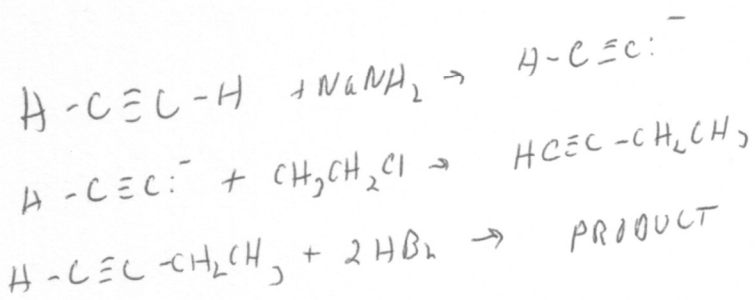 H-C≡C-H + NaNH₂ → H-C≡C:⁻
H-C≡C:⁻ + CH₃CH₂Cl → HC≡C-CH₂CH₃
H-C≡C-CH₂CH₃ + 2HBr → PRODUCT